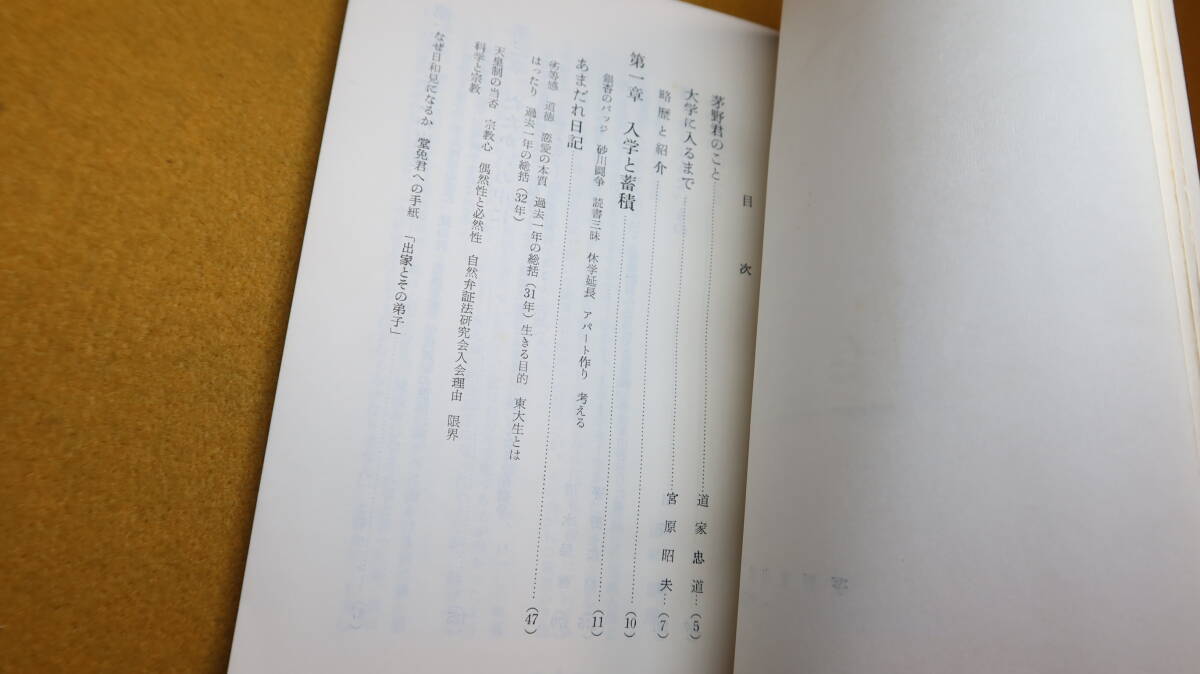 目次
茅野君のこと……道家忠道…(5)
大学に入るまで……宮原昭夫…(7)
略歴と紹介……(10)
第一章 入学と蓄積……(11)
銀杏のバッジ 砂川闘争 読書三昧 休学延長 アパート作り 考える
あまだれ日記……(47)
劣等感 道徳 恋愛の本質 過去一年の総括(31年) 生きる目的 東大生とは
はったり 過去一年の総括(32年)
天皇制の当否 宗教心 偶然性と必然性 自然弁証法研究会入会理由 限界
科学と宗教
なぜ日和見になるか 堂免君への手紙 「出家とその弟子」